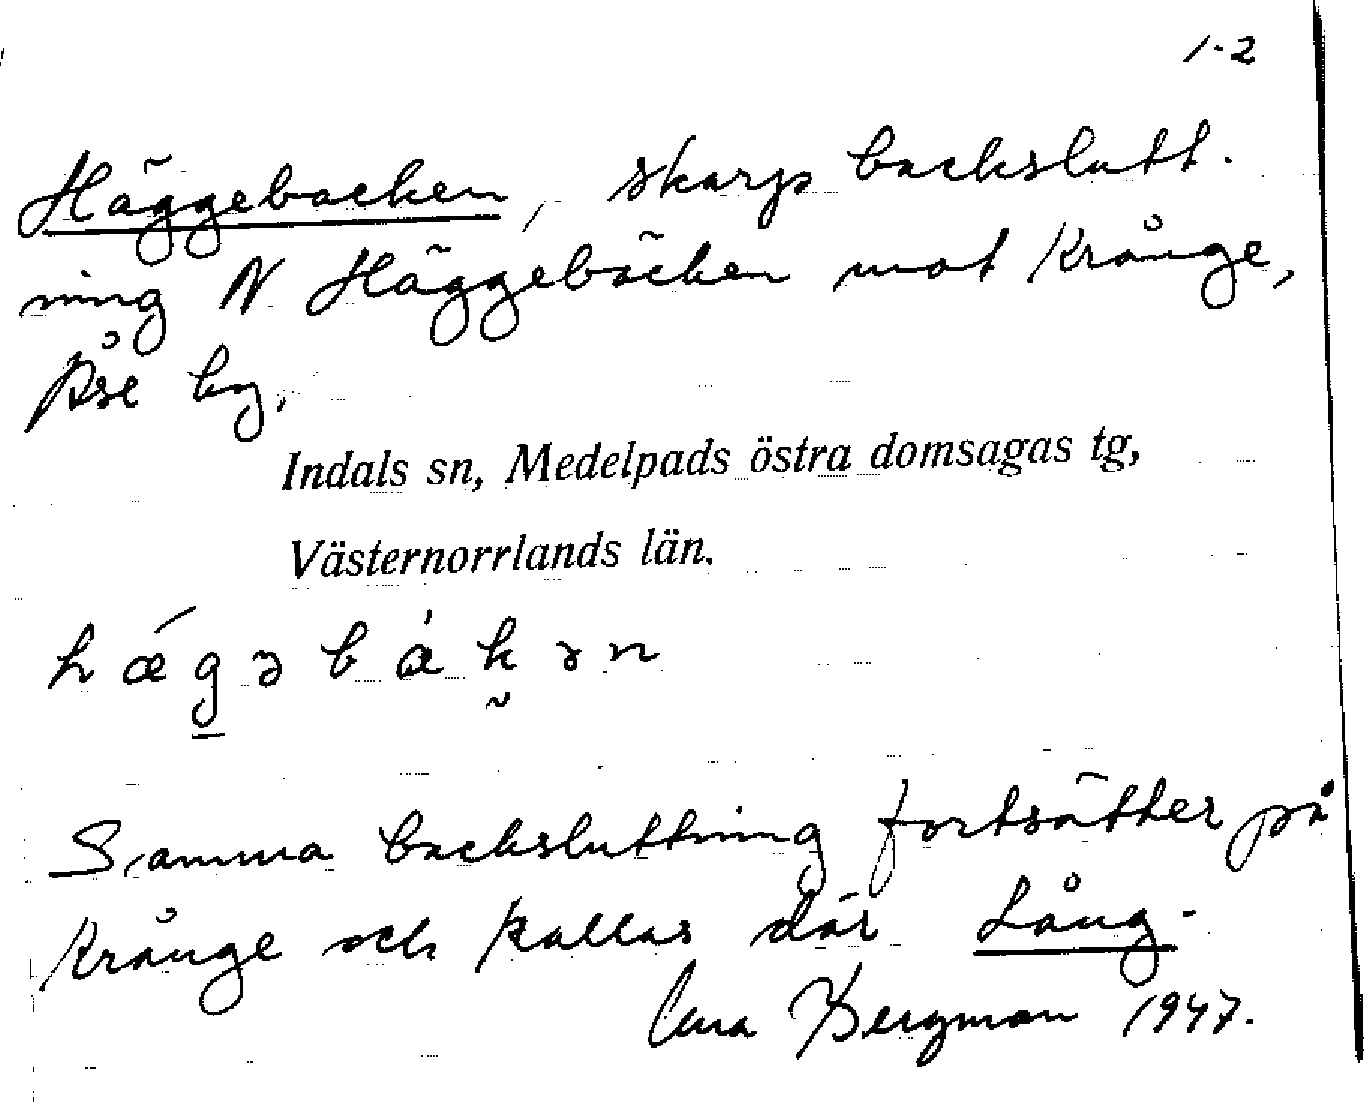 1-2
Häggebacken, skarp backslutt-
ning N Häggebäcken mot Krånge,
Påse by,
Indals sn, Medelpads östra domsagas tg,
Västernorrlands län.
hǽgəbàkən
Samma backsluttning fortsätter på
Krånge och kallas där Lång-
Bergman 1947.